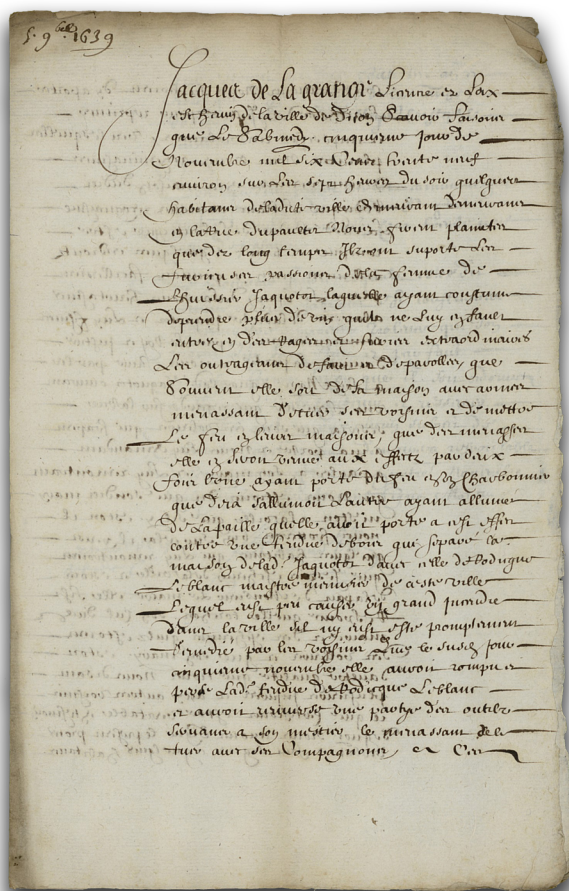 5. 9bre 1639
Jacques de La grange Licencie es Loix
eschevin de la ville de Dijon Scavoir faisons
que Le Sabmedy cinquieme jour de
Novembre mil six cens trente neuf
environ sur les sept heures du soir quelques
habitans de ladite ville demeurans
en la rue du paultet Nous firent plainte
que des long temps Ilz ont suporte Les
furieuses passions de la femme de
Lhuissier Jaquotot laquelle ayant coustume
de prendre plus de vin quil ne luy en faut
entre en des rages et furies extraordinaires
Les outrageant de parolles, que
Souvent elle sort de sa maison avec armes
menassant de tuer ses voisins et de mettre
Le feu en leurs maisons, que des menasses
elle en seroit venue aux effectz par deux
fois Lune ayant porte du feu en ses Charbonnier
que desia sallumoit Lautre ayant allume
de La paille quelle avoit porte a cest effect
contre une tendue de bois qui separe la
maison de lad. Jaquotot davec celle de Rodigue
Leblanc maistre menusier de ceste ville
Lequel eust peu causer un grand Incendie
dans la ville sil ny eust este promptement
remedie par les voisins Que le susd. jour
cinquieme novembre elle auroit rompu et
perse Lad. tendue de Rodicque Leblanc
et auroit renverse une partye des outilz
servans a son mestier le menassant de le
tuer avec ses Compagnons, et Ces